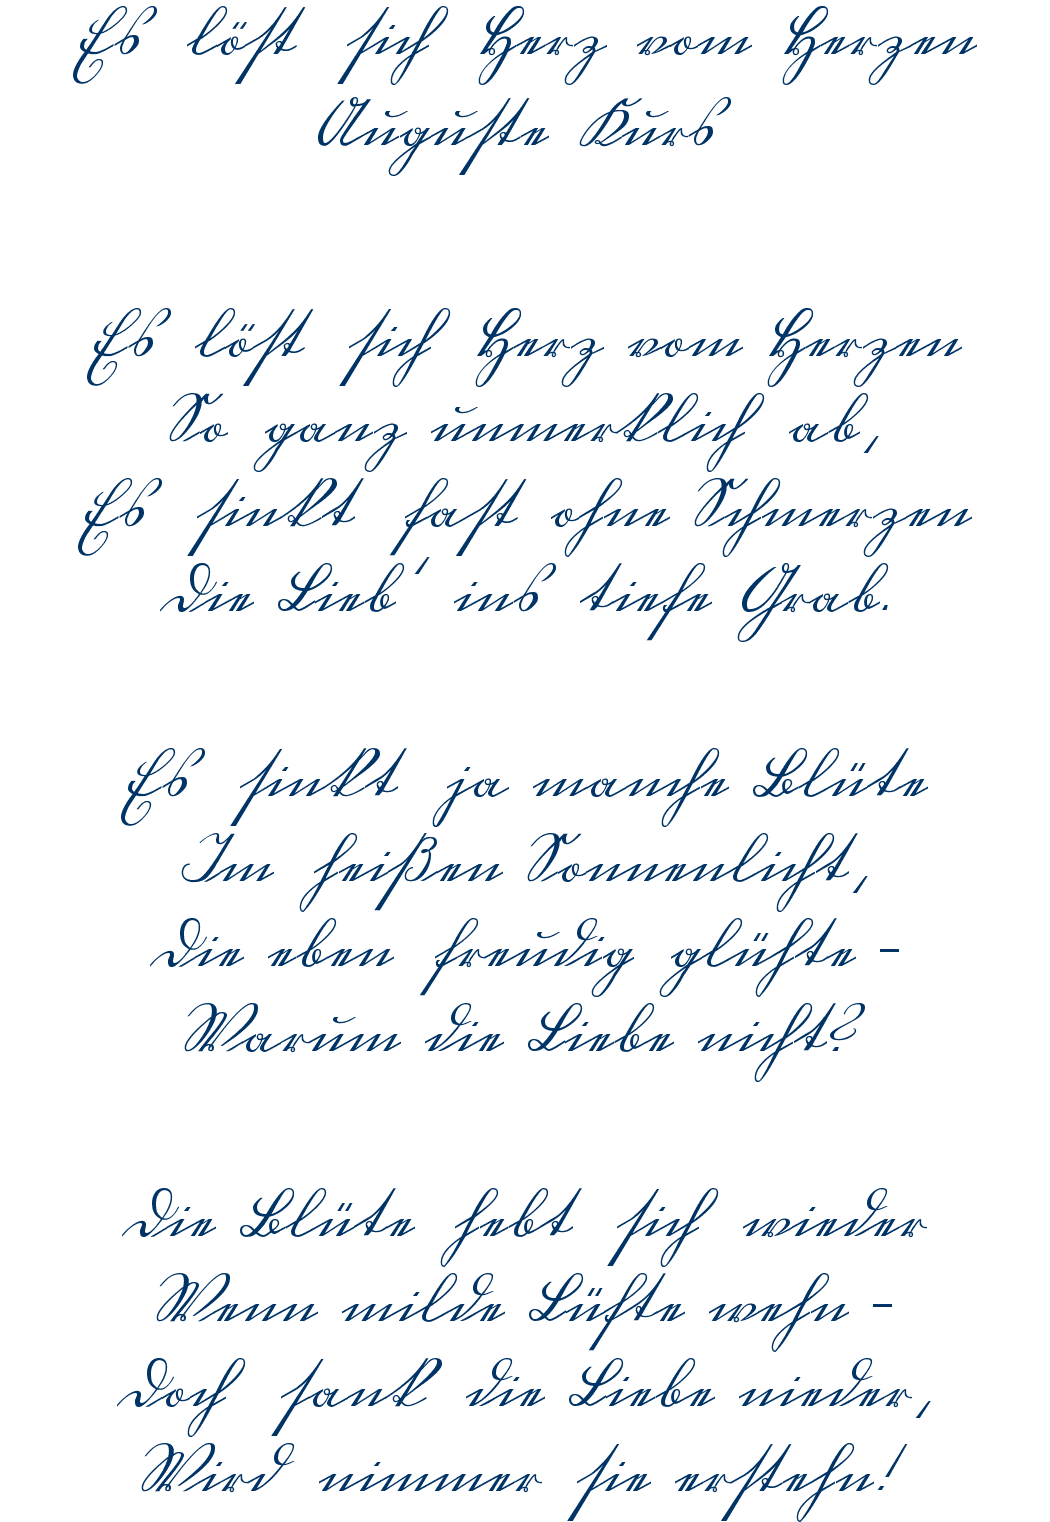 Es löst sich Herz vom Herzen
Auguste Kurs
Es löst sich Herz vom Herzen
So ganz unmerklich ab,
Es sinkt fast ohne Schmerzen
Die Lieb' ins tiefe Grab.
Es sinkt ja manche Blüte
Im heißen Sonnenlicht,
Die eben freudig glühte -
Warum die Liebe nicht?
Die Blüte hebt sich wieder
Wenn milde Lüfte wehn -
Doch sank die Liebe nieder,
Wird nimmer sie erstehn!